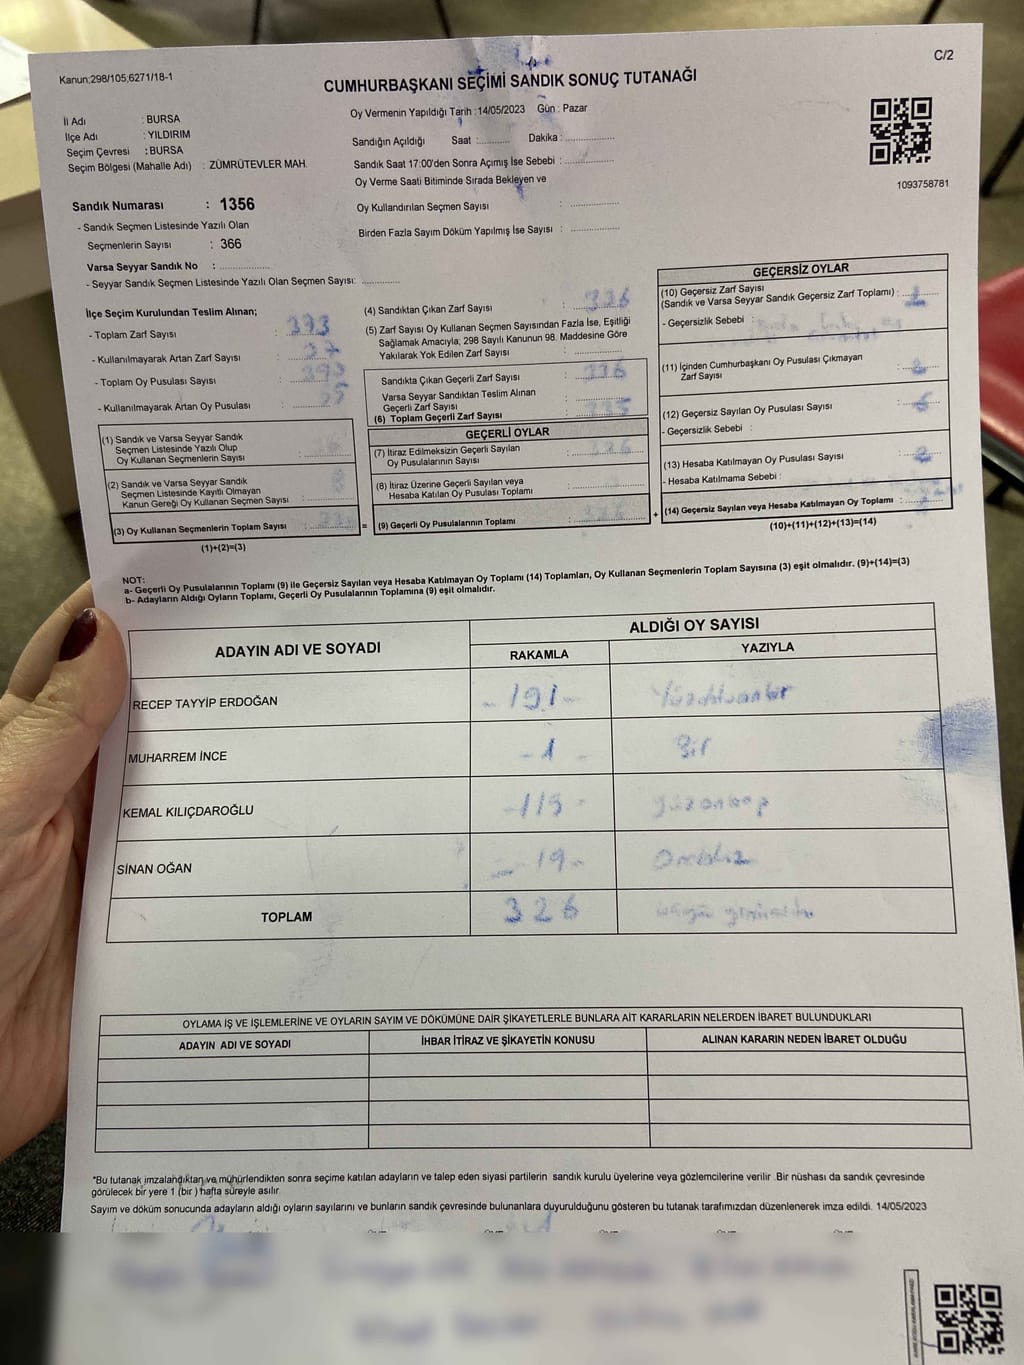 Kanun;298/105;6271/18-1
C/2
CUMHURBAŞKANI SEÇİMİ SANDIK SONUÇ TUTANAĞI
İl Adı : BURSA
İlçe Adı : YILDIRIM
Seçim Çevresi : BURSA
Seçim Bölgesi (Mahalle Adı) : ZÜMRÜTEVLER MAH.
Sandık Numarası : 1356
- Sandık Seçmen Listesinde Yazılı Olan
Seçmenlerin Sayısı : 366
Varsa Seyyar Sandık No : ..................
- Seyyar Sandık Seçmen Listesinde Yazılı Olan Seçmen Sayısı: ............
Oy Vermenin Yapıldığı Tarih : 14/05/2023 Gün : Pazar
Sandığın Açıldığı Saat :........... Dakika :................
Sandık Saat 17:00'den Sonra Açımış İse Sebebi :................
Oy Verme Saati Bitiminde Sırada Bekleyen ve
Oy Kullandırılan Seçmen Sayısı : ................
Birden Fazla Sayım Döküm Yapılmış İse Sayısı : ................
1093758781
İlçe Seçim Kurulundan Teslim Alınan;
- Toplam Zarf Sayısı : 393
- Kullanılmayarak Artan Zarf Sayısı : 27
- Toplam Oy Pusulası Sayısı :
- Kullanılmayarak Artan Oy Pusulası :
(1) Sandık ve Varsa Seyyar Sandık
Seçmen Listesinde Yazılı Olup
Oy Kullanan Seçmenlerin Sayısı :
(2) Sandık ve Varsa Seyyar Sandık
Seçmen Listesinde Kayıtlı Olmayan
Kanun Gereği Oy Kullanan Seçmen Sayısı :
(3) Oy Kullanan Seçmenlerin Toplam Sayısı : =
(1)+(2)=(3)
(4) Sandıktan Çıkan Zarf Sayısı : 336
(5) Zarf Sayısı Oy Kullanan Seçmen Sayısından Fazla İse, Eşitliği
Sağlamak Amacıyla; 298 Sayılı Kanunun 98. Maddesine Göre
Yakılarak Yok Edilen Zarf Sayısı : ................
Sandıkta Çıkan Geçerli Zarf Sayısı :
Varsa Seyyar Sandıktan Teslim Alınan
Geçerli Zarf Sayısı :
(6) Toplam Geçerli Zarf Sayısı : 335
GEÇERLİ OYLAR
(7) İtiraz Edilmeksizin Geçerli Sayılan
Oy Pusulalarının Sayısı : 326
(8) İtiraz Üzerine Geçerli Sayılan veya
Hesaba Katılan Oy Pusulası Toplamı :
(9) Geçerli Oy Pusulalarının Toplamı : 326 +
GEÇERSİZ OYLAR
(10) Geçersiz Zarf Sayısı
(Sandık ve Varsa Seyyar Sandık Geçersiz Zarf Toplamı) : 1
- Geçersizlik Sebebi :
(11) İçinden Cumhurbaşkanı Oy Pusulası Çıkmayan
Zarf Sayısı :
(12) Geçersiz Sayılan Oy Pusulası Sayısı :
- Geçersizlik Sebebi :
(13) Hesaba Katılmayan Oy Pusulası Sayısı :
- Hesaba Katılmama Sebebi :
(14) Geçersiz Sayılan veya Hesaba Katılmayan Oy Toplamı :
(10)+(11)+(12)+(13)=(14)
NOT:
a- Geçerli Oy Pusulalarının Toplamı (9) ile Geçersiz Sayılan veya Hesaba Katılmayan Oy Toplamı (14) Toplamları, Oy Kullanan Seçmenlerin Toplam Sayısına (3) eşit olmalıdır. (9)+(14)=(3)
b- Adayların Aldığı Oyların Toplamı, Geçerli Oy Pusulalarının Toplamına (9) eşit olmalıdır.
ADAYIN ADI VE SOYADI
ALDIĞI OY SAYISI
RAKAMLA YAZIYLA
RECEP TAYYİP ERDOĞAN - 191 -
MUHARREM İNCE - 1 - Bir
KEMAL KILIÇDAROĞLU - 115 - yüzonbeş
SİNAN OĞAN - 19 - Ondokuz
TOPLAM 326
OYLAMA İŞ VE İŞLEMLERİNE VE OYLARIN SAYIM VE DÖKÜMÜNE DAİR ŞİKAYETLERLE BUNLARA AİT KARARLARIN NELERDEN İBARET BULUNDUKLARI
ADAYIN ADI VE SOYADI İHBAR İTİRAZ VE ŞİKAYETİN KONUSU ALINAN KARARIN NEDEN İBARET OLDUĞU
*Bu tutanak imzalandıktan ve mühürlendikten sonra seçime katılan adayların ve talep eden siyasi partilerin sandık kurulu üyelerine veya gözlemcilerine verilir. Bir nüshası da sandık çevresinde
görülecek bir yere 1 (bir) hafta süreyle asılır.
Sayım ve döküm sonucunda adayların aldığı oyların sayılarını ve bunların sandık çevresinde bulunanlara duyurulduğunu gösteren bu tutanak tarafımızdan düzenlenerek imza edildi. 14/05/2023